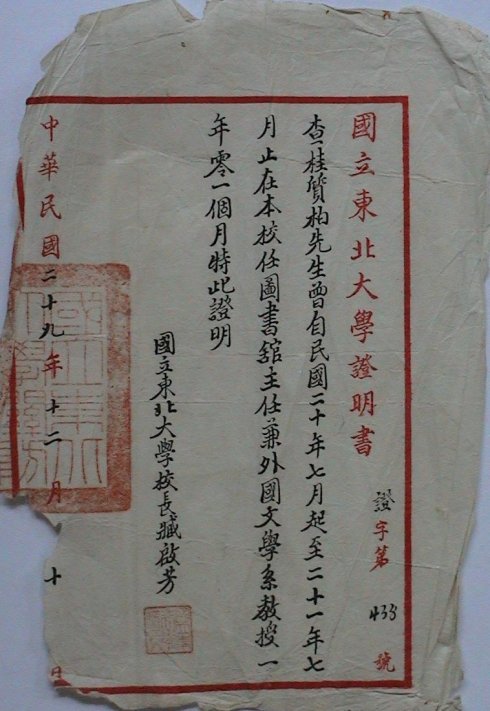 國立東北大學證明書
證字第433號
查桂質柏先生曾自民國二十年七月起至二十一年七
月止在本校任圖書舘主任兼外國文學系教授一
年零一個月特此證明
國立東北大學校長臧啟芳
中華民國二十九年十二月十日